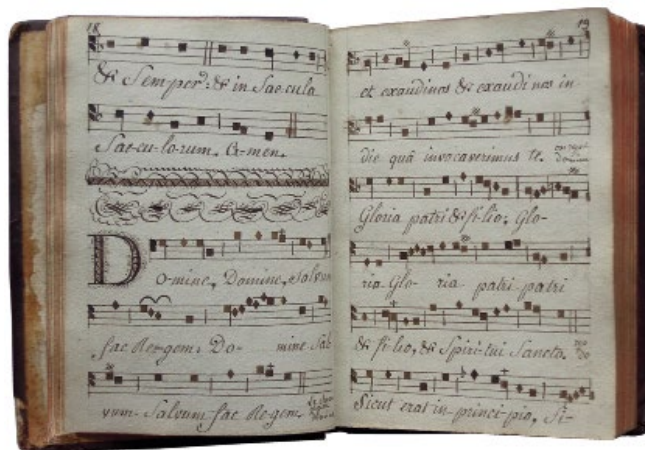 18
& Semper: & in Saecula
Sae-cu-lo-rum. A-men.
Do-mine, Domine, Salvum
fac Re-gem. Do- mine Sal
vum. Salvum fac Re-gem.
19
et exaudi nos & exaudi nos in
die quâ invocaverimus te.
Gloria patri & fi-lio; Glo-
ria Glo- ria patri patri
& fi-lio, & Spiri-tui Sancto.
Sicut erat in principio, Si-